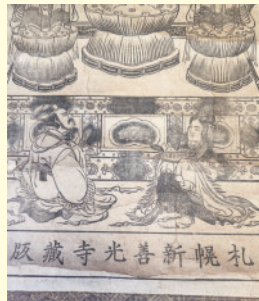 札幌新善光寺藏版